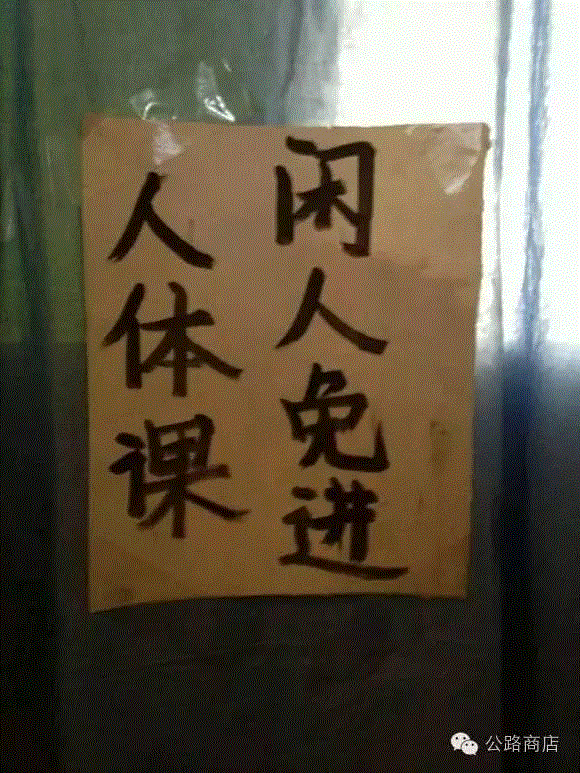 人体课
闲人免进
公路商店